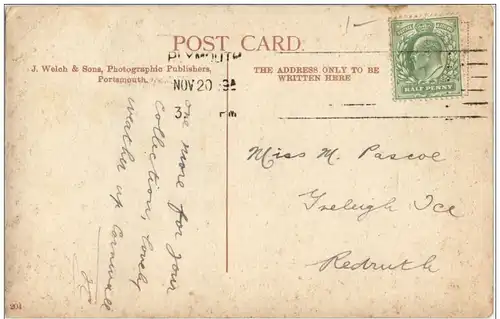 1-
POST CARD.
J. Welch & Sons, Photographic Publishers,
Portsmouth.
THE ADDRESS ONLY TO BE
WRITTEN HERE
PLYMOUTH
NOV 20
HALF PENNY
one more for your
collection, lovely
weather up Cornwall
Miss M. Pascoe
Redruth
204